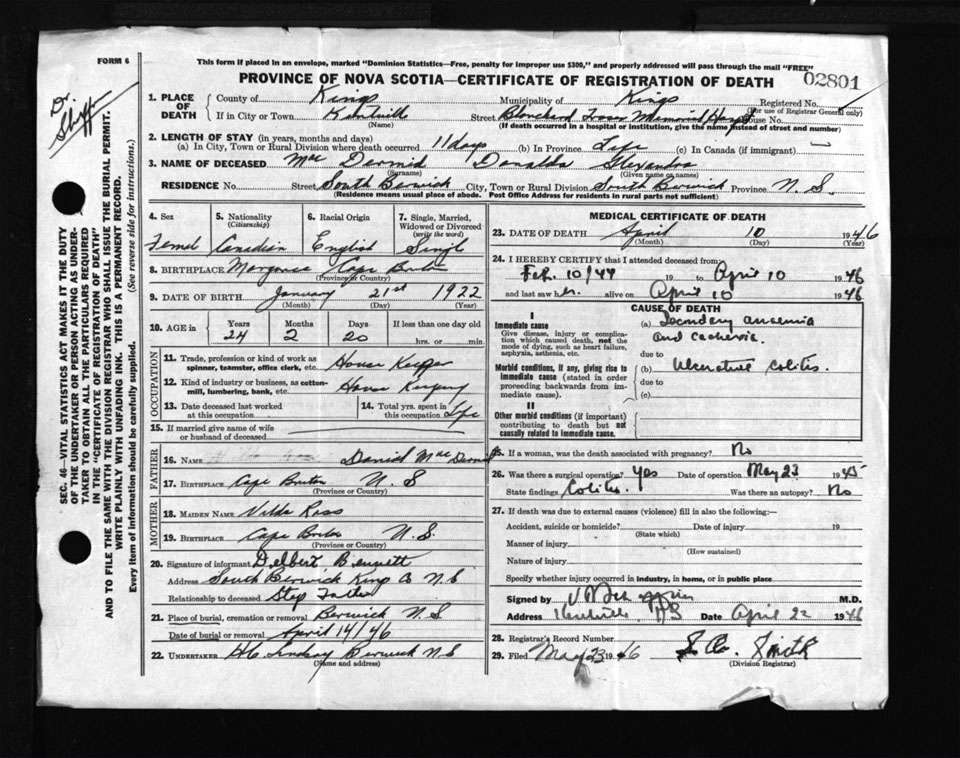 FORM 6
This form if placed in an envelope, marked "Dominion Statistics—Free, penalty for improper use $300," and properly addressed will pass through the mail "FREE"
PROVINCE OF NOVA SCOTIA—CERTIFICATE OF REGISTRATION OF DEATH
02801
Dr
SEC. 46—VITAL STATISTICS ACT MAKES IT THE DUTY
OF THE UNDERTAKER OR PERSON ACTING AS UNDER-
TAKER TO OBTAIN ALL THE PARTICULARS REQUIRED
IN THE "CERTIFICATE OF REGISTRATION OF DEATH"
AND TO FILE THE SAME WITH THE DIVISION REGISTRAR WHO SHALL ISSUE THE BURIAL PERMIT.
WRITE PLAINLY WITH UNFADING INK. THIS IS A PERMANENT RECORD.
Every item of information should be carefully supplied. (See reverse side for instructions.)
1. PLACE OF DEATH County of Kings Municipality of Kings Registered No.
(For use of Registrar General only)
If in City or Town Kentville Street Blanchard Memorial House No.
(Name) (If death occurred in a hospital or institution, give the name instead of street and number)
2. LENGTH OF STAY (in years, months and days)
(a) In City, Town or Rural Division where death occurred 11 days (b) In Province Life (c) In Canada (if immigrant)
3. NAME OF DECEASED Mac Dermid Donalda Alexandra
(Surname) (Given name or names)
RESIDENCE No. Street South Berwick City, Town or Rural Division South Berwick Province N. S.
(Residence means usual place of abode. Post Office Address for residents in rural parts not sufficient)
4. Sex 5. Nationality 6. Racial Origin 7. Single, Married,
(Citizenship) Widowed or Divorced
(write the word)
Canadian English
8. BIRTHPLACE Margaree Cape Breton
(Province or Country)
9. DATE OF BIRTH January 21st 1922
(Month) (Day) (Year)
10. AGE in Years Months Days If less than one day old
24 2 20 hrs. or min.
OCCUPATION
11. Trade, profession or kind of work as
spinner, teamster, office clerk, etc. House Keeper
12. Kind of industry or business, as cotton-
mill, lumbering, bank, etc. House Keeping
13. Date deceased last worked 14. Total yrs. spent in
at this occupation in this occupation Life
15. If married give name of wife
or husband of deceased
FATHER
16. Name Daniel Mac Dermid
17. Birthplace Cape Breton N. S
(Province or Country)
MOTHER
18. Maiden Name Ross
19. Birthplace Cape Breton N. S.
(Province or Country)
20. Signature of informant Delbert Bennett
Address South Berwick Kings Co N. S
Relationship to deceased Step Father
21. Place of burial, cremation or removal Berwick N. S
Date of burial or removal April 14/46
22. UNDERTAKER Lindsay Berwick N. S
(Name and address)
MEDICAL CERTIFICATE OF DEATH
23. DATE OF DEATH April 10 1946
(Month) (Day) (Year)
24. I HEREBY CERTIFY that I attended deceased from
Feb. 10/44 19 to April 10 1946
and last saw her alive on April 10 1946
CAUSE OF DEATH
I
Immediate cause
Give disease, injury or complica-
tion which caused death, not the
mode of dying, such as heart failure,
asphyxia, asthenia, etc.
(a) Secondary anaemia
and cachexia.
due to
Morbid conditions, if any, giving rise to
immediate cause (stated in order
proceeding backwards from im-
mediate cause).
(b) Ulcerative Colitis.
due to
(c)
II
Other morbid conditions (if important)
contributing to death but not
causally related to immediate cause.
25. If a woman, was the death associated with pregnancy? No
26. Was there a surgical operation? Yes Date of operation May 23 1945
State findings Colitis. Was there an autopsy? No
27. If death was due to external causes (violence) fill in also the following:—
Accident, suicide or homicide? Date of injury 19
(State which)
Manner of injury
(How sustained)
Nature of injury
Specify whether injury occurred in industry, in home, or in public place
Signed by M.D.
Address Kentville NS Date April 22 1946
28. Registrar's Record Number
29. Filed May 23 1946 Smith
(Division Registrar)